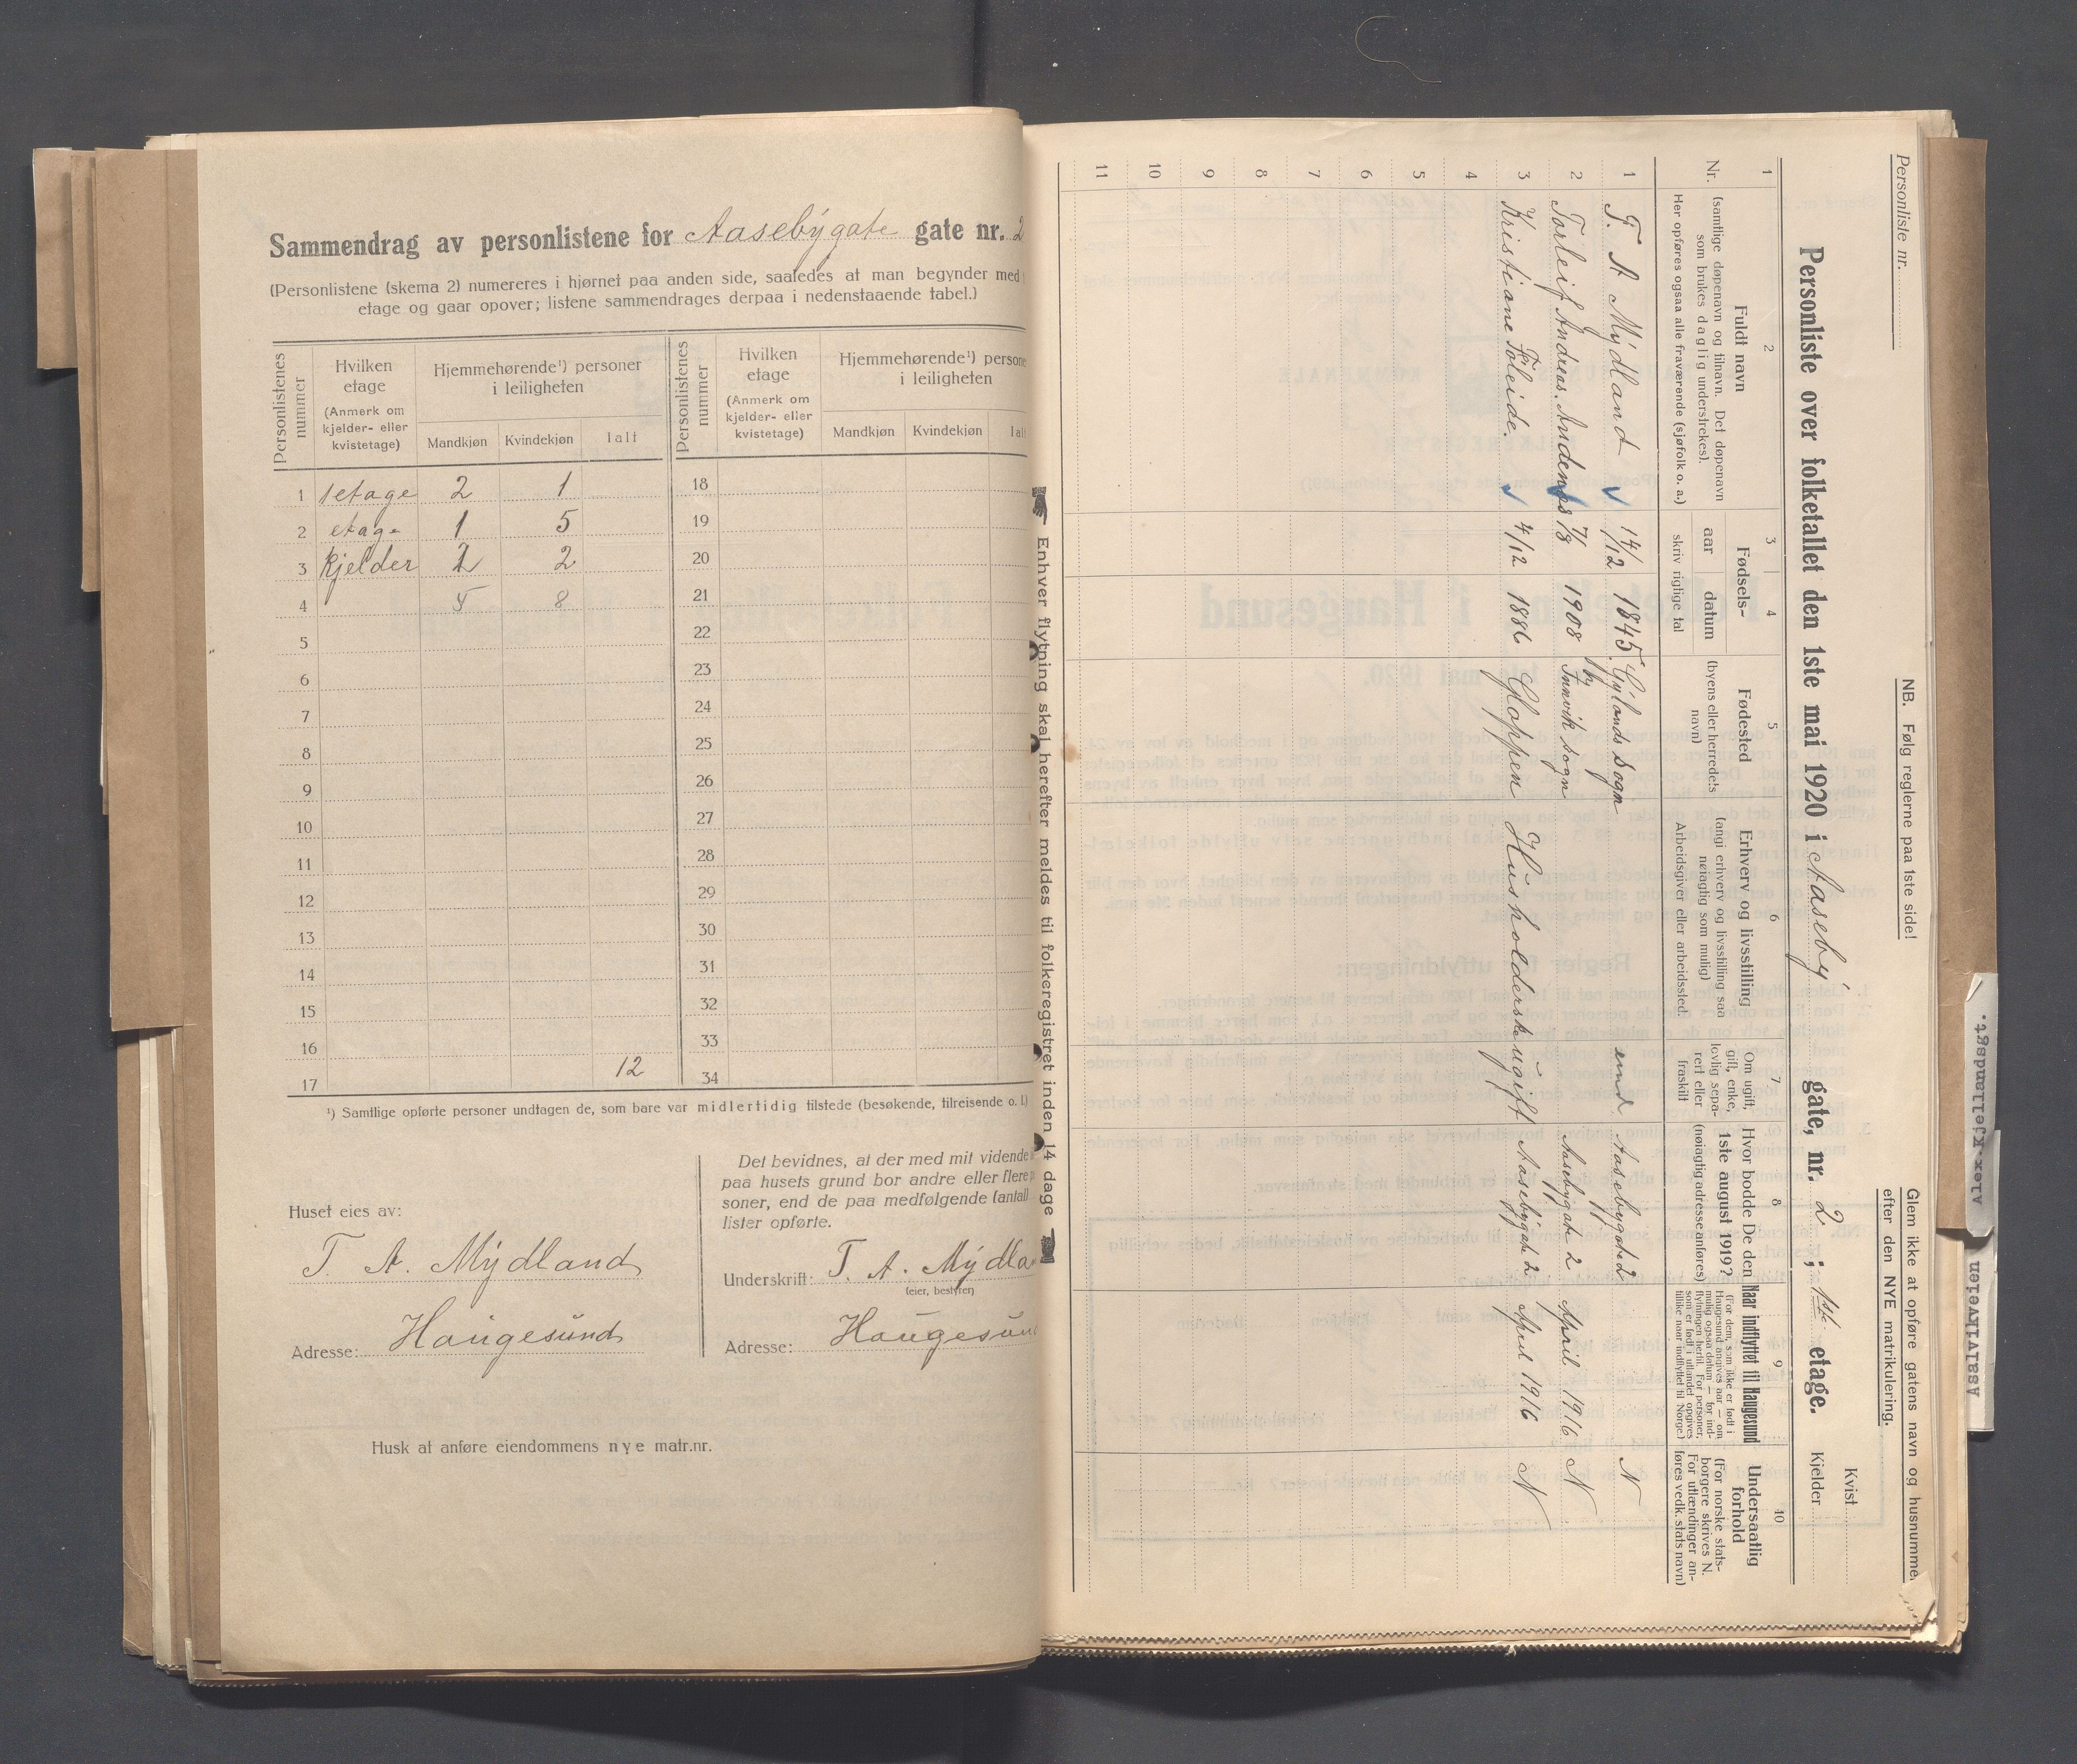 Sammendrag av personlistene for Aasebygate gate nr. 2
(Personlistene (skema 2) numereres i hjørnet paa anden side, saaledes at man begynder med
etage og gaar opover; listene sammendrages derpaa i nedenstaaende tabel.)
Personlistenes nummer
Hvilken etage
(Anmerk om kjelder- eller kvistetage)
Hjemmehørende¹) personer i leiligheten
Mandkjøn Kvindekjøn Ialt
Personlistenes nummer
Hvilken etage
(Anmerk om kjelder- eller kvistetage)
Hjemmehørende¹) persone
i leiligheten
Mandkjøn Kvindekjøn Ial
1 1etage 2 1 18
2 etage 1 5 19
3 Kjelder 2 2 20
4 5 8 21
5 22
6 23
7 24
8 25
9 26
10 27
11 28
12 29
13 30
14 31
15 32
16 33
17 12 34
¹) Samtlige opførte personer undtagen de, som bare var midlertidig tilstede (besøkende, tilreisende o. l.)
Huset eies av:
T. A. Mydland
Adresse: Haugesund
Det bevidnes, at der med mit vidende
paa husets grund bor andre eller flere
soner, end de paa medfølgende (antal)
lister opførte.
Underskrift: T. A. Mydla
(eier, bestyrer)
Adresse: Haugesun
Husk at anføre eiendommens nye matr.nr.
Enhver flytning skal herefter meldes til folkeregistret inden 14 dage
Personliste nr.
NB. Følg reglerne paa 1ste side!
Glem ikke at opføre gatens navn og husnumme
efter den NYE matrikulering.
Personliste over folketallet den 1ste mai 1920 i Aaseby gate, nr. 2 ; 1ste etage.
Kvist
Kjelder
1 2 3 4 5 6 7 8 9 10
Nr.
Fuldt navn
(samtlige døpenavn og tilnavn. Det døpenavn
som brukes daglig understrekes).
Her opføres ogsaa alle fraværende (sjøfolk o. a.)
Fødsels-
aar datum
skriv riglige tal
Fødested
(byens eller herredets
navn)
Erhverv og livsstilling
(angi erhverv og livsstilling saa
nøiagtig som mulig)
Arbeidsgiver eller arbeidssted.
Om ugift,
gift, enke,
lovlig sepa-
rert eller
fraskilt
Hvor bodde De den
1ste august 1919?
(nøiagtig adresse anføres)
Naar indflyttet til Haugesund
(For dem, som ikke er født i
Haugesund, angives aar — om
mulig ogsaa datum — for ind-
flytningen hertil. For personer,
som er født i utlandet opgives
tillike naar indflyttet til Norge.)
Undersaatlig
forhold
(For norske stats-
borgere skrives N.
For utlændinger an-
føres vedk. stats navn)
1 T. A Mydland 14/12 1845 Gylands sogn Aasebygate 2 N
2 Torleif Andreas. Andenæs 7/8 1908 Innvik sogn Aasebygate 2 April 1916 N
3 Kristiane Føleide. 4/12 1886 Gloppen Husholderske ugift Aasebygate 2 April 1916 N
4
5
6
7
8
9
10
11
Alex.Kjellandsgt.
Asalvikveten